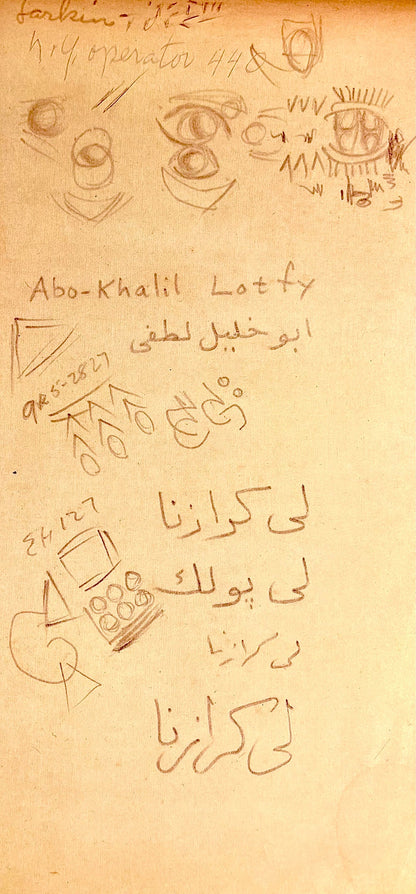 Larkin-
N.Y. operator 44
Abo-Khalil Lotfy
ابو خليل لطفى
GR5-2827
EH 127
لى كرازنا
لى پولك
لى كرازنا
لى كرازنا